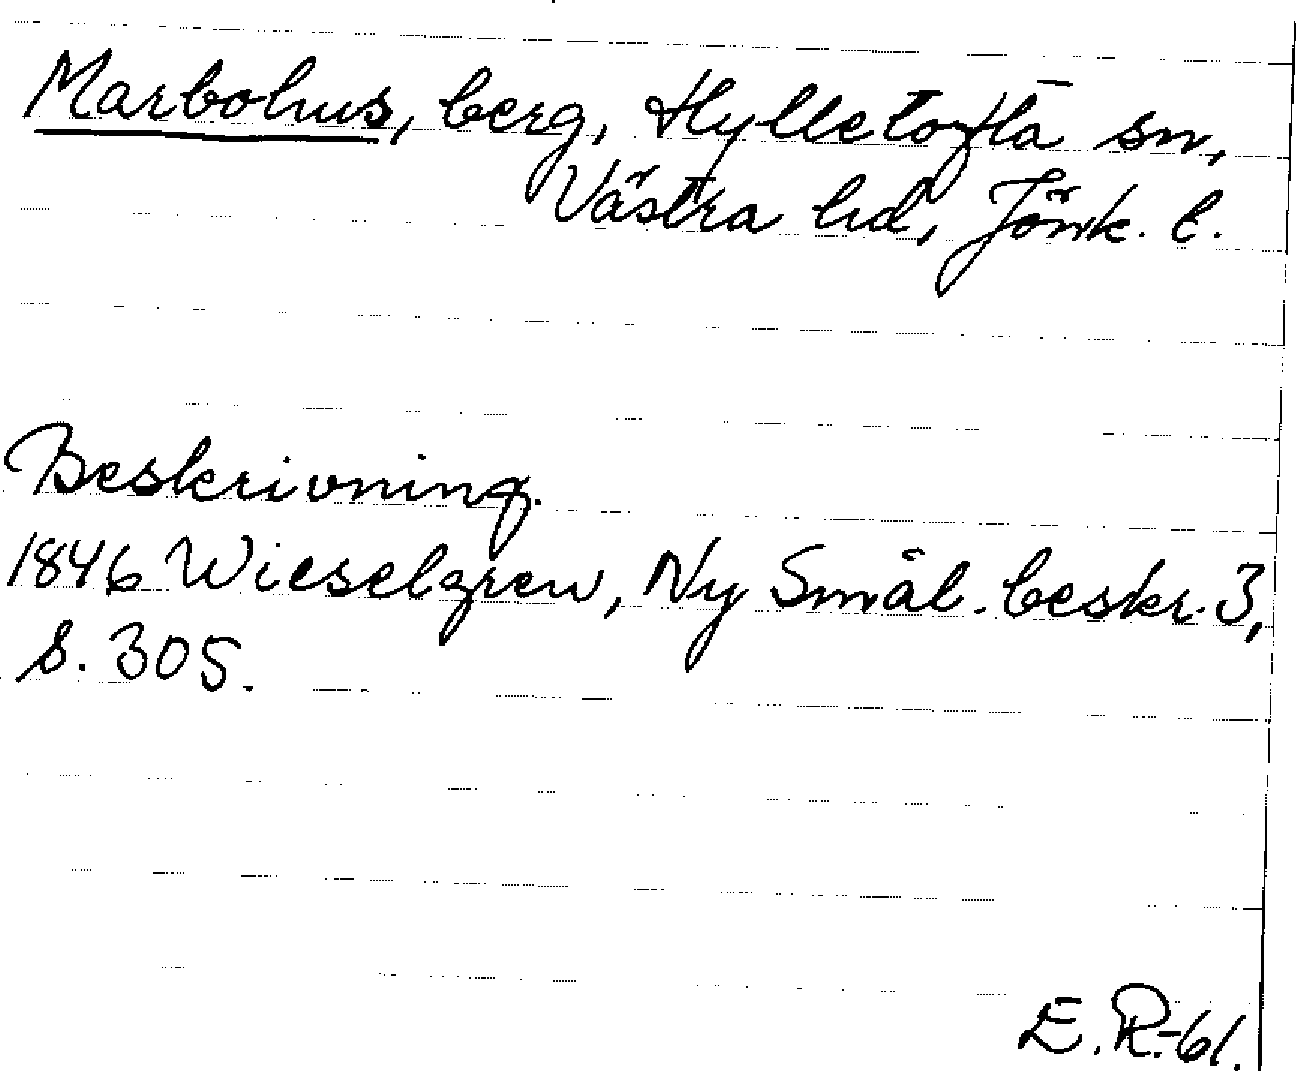 Marbohus, berg, Hylletofta sn,
Västra hd, Jönk. l.
Beskrivning.
1846 Wieselgren, Ny Smål. beskr. 3,
s. 305.
E. R.-61.